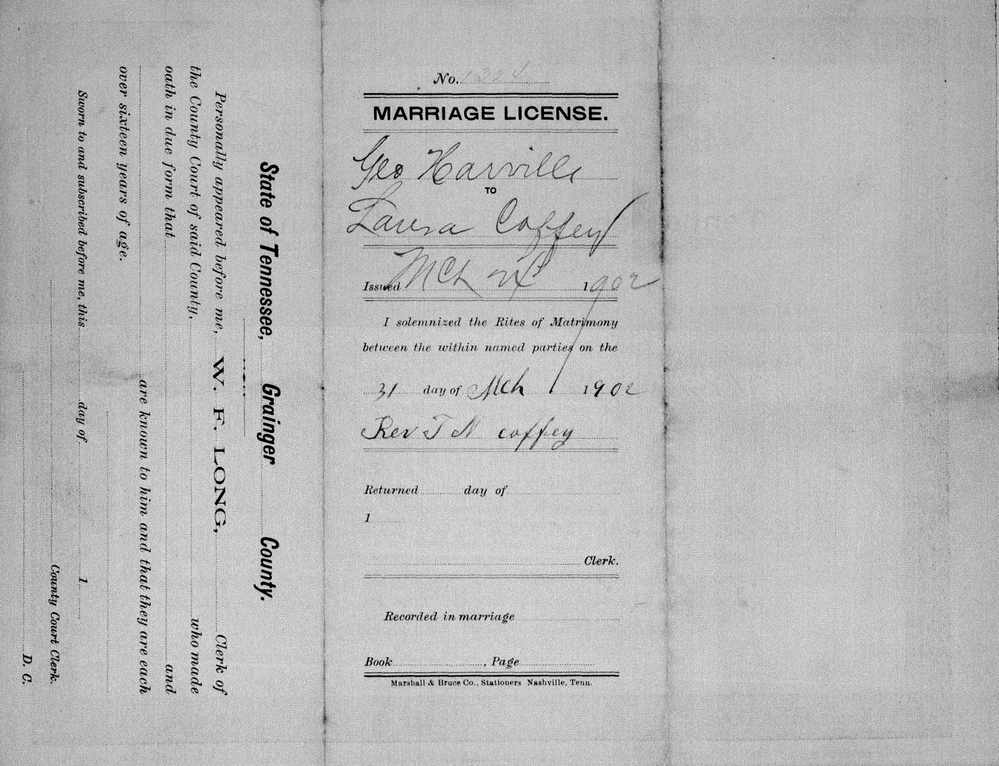 State of Tennessee, Grainger County.
Personally appeared before me, W. F. LONG, Clerk of
the County Court of said County, who made
oath in due form that and
are known to him and that they are each
over sixteen years of age.
Sworn to and subscribed before me, this day of 1
County Court Clerk.
D. C.
No.
MARRIAGE LICENSE.
Geo Harville
TO
Laura Coffey
Issued Mch 1902
I solemnized the Rites of Matrimony
between the within named parties on the
31 day of Mch 1902
Rev T N Coffey
Returned day of
1
Clerk.
Recorded in marriage
Book , Page
Marshall & Bruce Co., Stationers Nashville, Tenn.